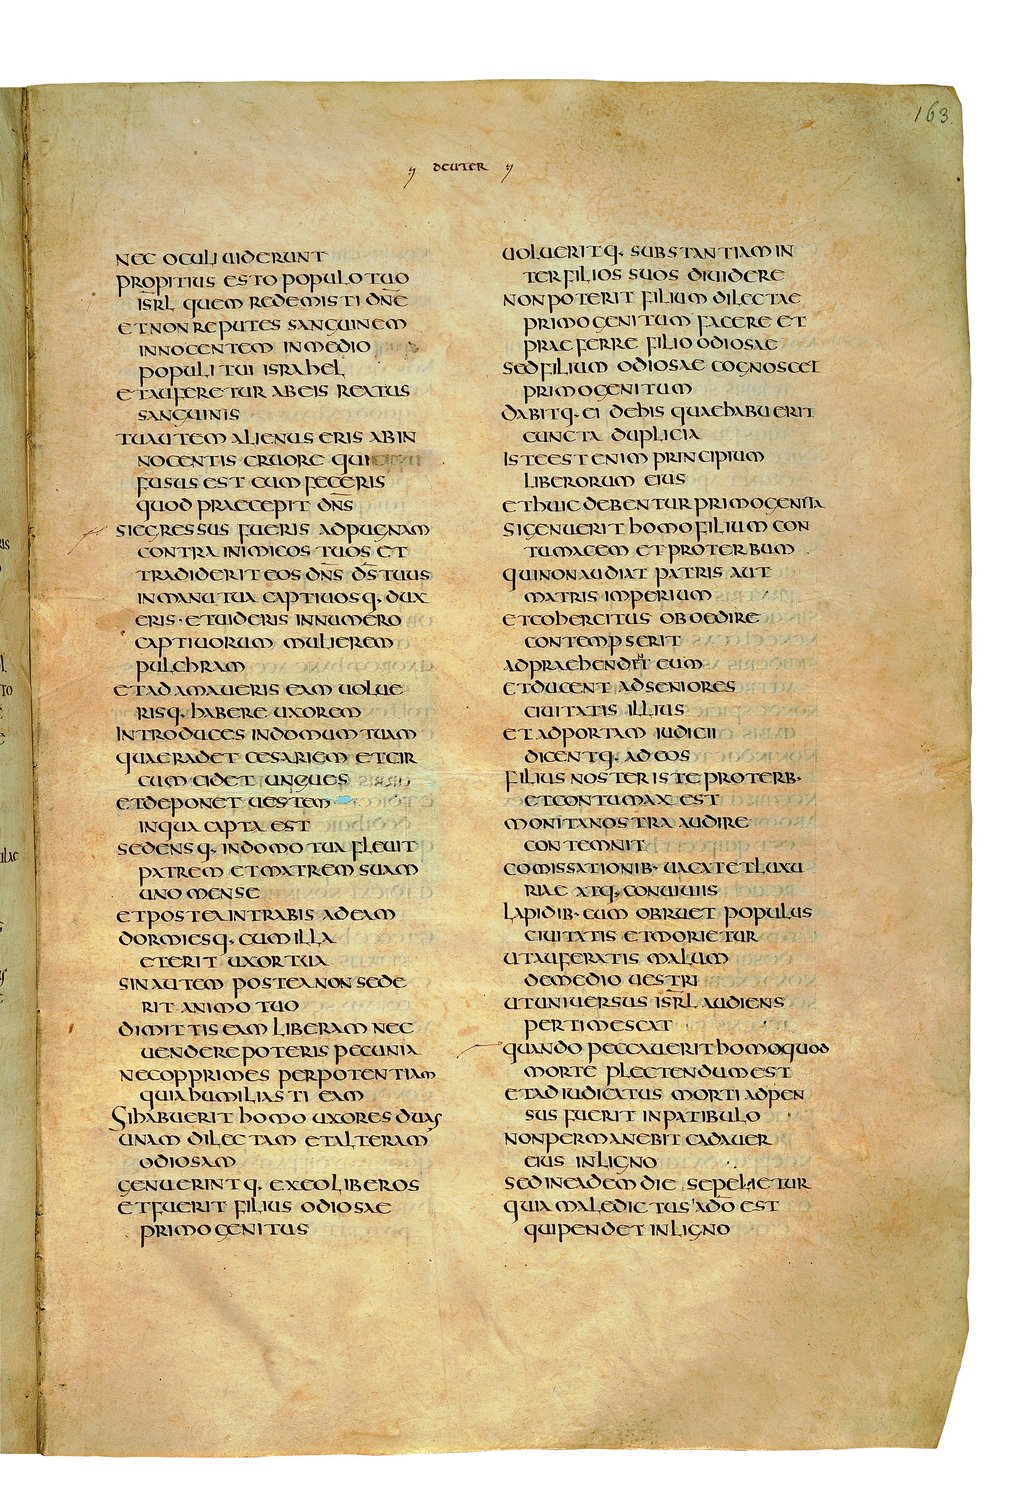 163
DEUTER
NEC OCULI UIDERUNT
PROPITIUS ESTO POPULO TUO
ISR̅L QUEM REDEMISTI DN̅E
ET NON REPUTES SANGUINEM
INNOCENTEM IN MEDIO
POPULI TUI ISRAHEL
ET AUFERETUR AB EIS REATUS
SANGUINIS
TU AUTEM ALIENUS ERIS AB IN
NOCENTIS CRUORE QUI
FUSUS EST CUM FECERIS
QUOD PRAECEPIT DN̅S
SI EGRESSUS FUERIS AD PUGNAM
CONTRA INIMICOS TUOS ET
TRADIDERIT EOS DN̅S DS̅ TUUS
IN MANU TUA CAPTIUOSQ· DUX
ERIS · ET UIDERIS IN NUMERO
CAPTIUORUM MULIEREM
PULCHRAM
ET ADAMAUERIS EAM UOLUE
RISQ· HABERE UXOREM
INTRODUCES IN DOMUM TUAM
QUAE RADET CESARIEM ET CIR
CUMCIDET UNGUES
ET DEPONET UESTEM
IN QUA CAPTA EST
SEDENSQ· IN DOMO TUA FLEUIT
PATREM ET MATREM SUAM
UNO MENSE
ET POSTEA INTRABIS AD EAM
DORMIESQ· CUM ILLA
ET ERIT UXOR TUA
SIN AUTEM POSTEA NON SEDE
RIT ANIMO TUO
DIMITTIS EAM LIBERAM NEC
UENDERE POTERIS PECUNIA
NEC OPPRIMES PER POTENTIAM
QUIA HUMILIASTI EAM
SI HABUERIT HOMO UXORES DUAS
UNAM DILECTAM ET ALTERAM
ODIOSAM
GENUERINTQ· EX EO LIBEROS
ET FUERIT FILIUS ODIOSAE
PRIMOGENITUS
UOLUERITQ· SUBSTANTIAM IN
TER FILIOS SUOS DIUIDERE
NON POTERIT FILIUM DILECTAE
PRIMOGENITUM FACERE ET
PRAEFERRE FILIO ODIOSAE
SED FILIUM ODIOSAE COGNOSCET
PRIMOGENITUM
DABITQ· EI DE HIS QUAE HABUERIT
CUNCTA DUPLICIA
ISTE EST ENIM PRINCIPIUM
LIBERORUM EIUS
ET HUIC DEBENTUR PRIMOGENITA
SI GENUERIT HOMO FILIUM CON
TUMACEM ET PROTERBUM
QUI NON AUDIAT PATRIS AUT
MATRIS IMPERIUM
ET COHERCITUS OBOEDIRE
CONTEMPSERIT
ADPRAEHENDET EUM
ET DUCENT AD SENIORES
CIUITATIS ILLIUS
ET AD PORTAM IUDICII
DICENTQ· AD EOS
FILIUS NOSTER ISTE PROTERB·
ET CONTUMAX EST
MONITA NOSTRA AUDIRE
CONTEMNIT
COMISSATIONIB· UACAT ET LUXU
RIAE ATQ· CONUIUIIS
LAPIDIB· EUM OBRUET POPULUS
CIUITATIS ET MORIETUR
UT AUFERATIS MALUM
DE MEDIO UESTRI
UT UNIUERSUS ISR̅L AUDIENS
PERTIMESCAT
QUANDO PECCAUERIT HOMO QUOD
MORTE PLECTENDUM EST
ET ADIUDICATUS MORTI ADPEN
SUS FUERIT IN PATIBULO
NON PERMANEBIT CADAUER
EIUS IN LIGNO
SED IN EADEM DIE SEPELIETUR
QUIA MALEDICTUS A DO̅ EST
QUI PENDET IN LIGNO